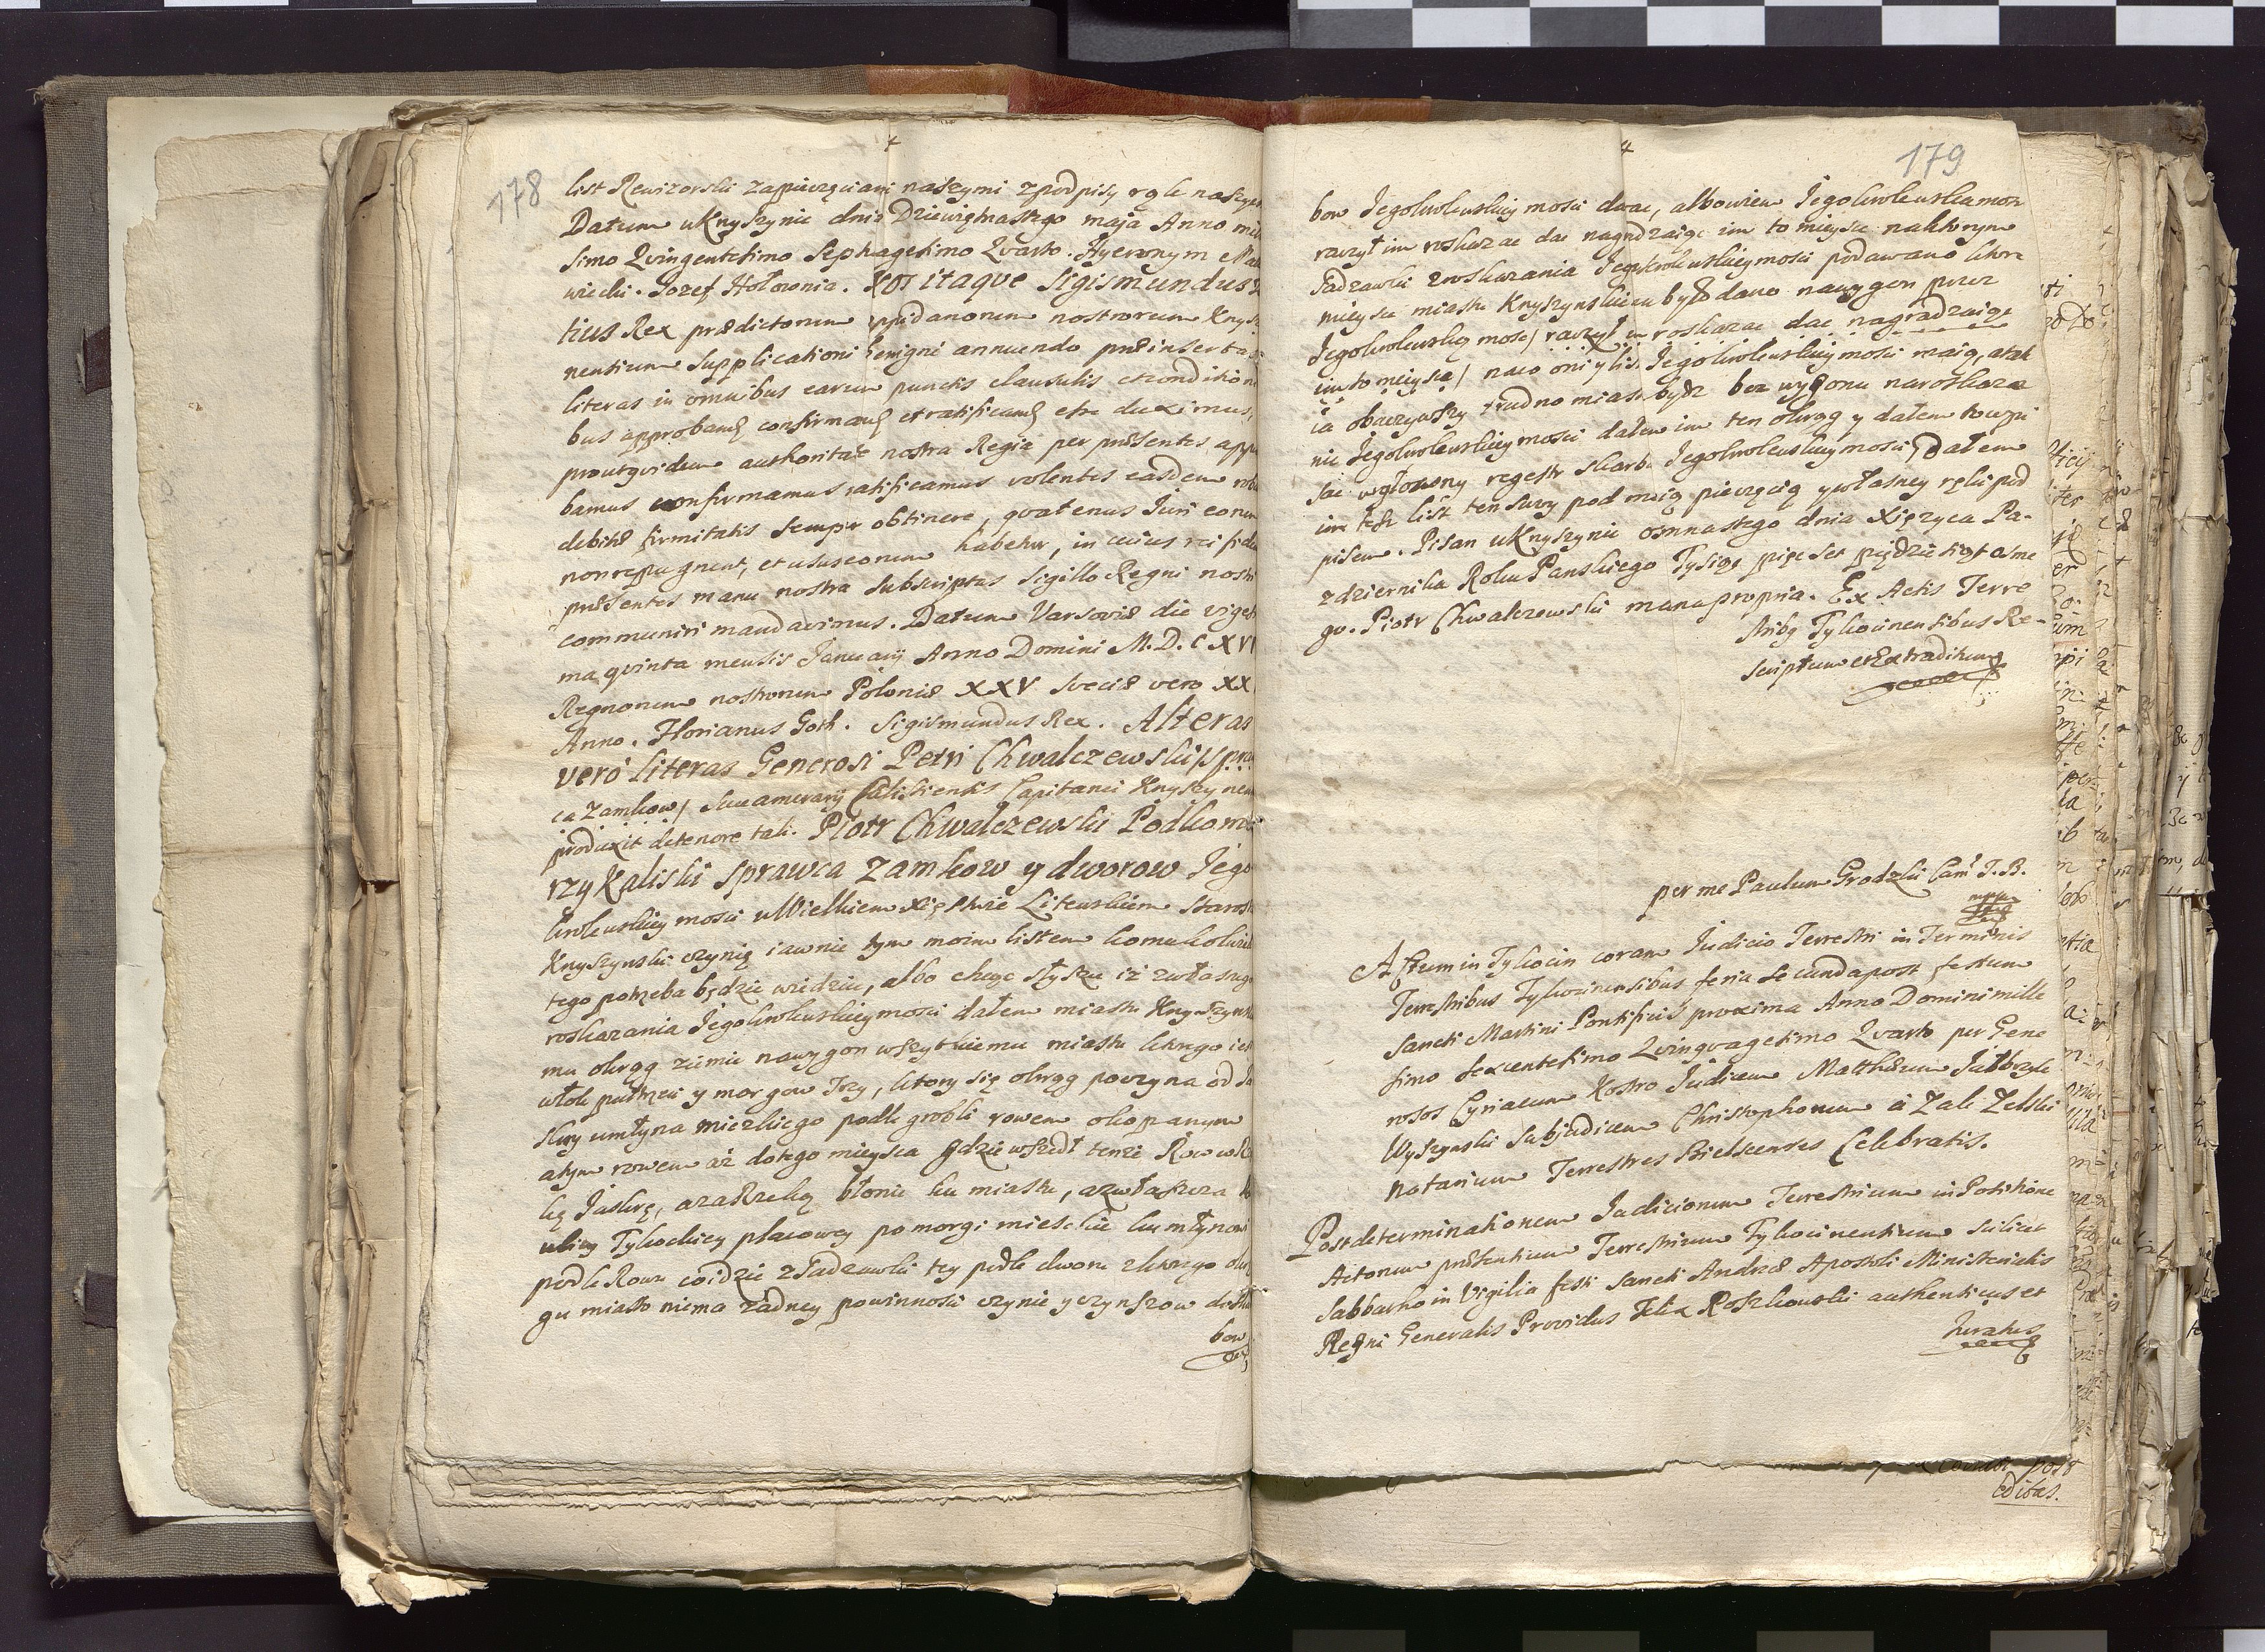 178
list Rewizorski zapieczęciami naszymi zpodpisy rąk naszych
Datum uKnyszynie dnia Dziewiętnastego maja Anno mil
simo Quingentesimo Septuagesimo Quarto. Hyeronym
wiecki. Jozef Hołownia. Nos itaque Sigismundus
tius Rex prædictorum oppidanorum nostrorum Knysz
nensium supplicationi benigne annuendo præinsertas
literas in omnibus earum punctis clausulis et conditioni
bus approband confirmand et ratificand esse duximus,
prout quidem authoritate nostra Regia per præsentes appro
bamus confirmamus ratificamus volentes easdem robur
debitæ firmitatis semper obtinere, quatenus Juri eorum
non repugnent, et usus eorum habetur, in cuius rei fidem
præsentes manu nostra subscriptas Sigillo Regni nostri
communiri mandavimus. Datum Varsoviæ die vigesi
ma quinta mensis Januarij Anno Domini M.D.C XVI
Regnorum nostrorum Poloniæ XXV Sveciæ vero XX
Anno. Florianus Goth. Sigismundus Rex. Alteras
verò literas Generosi Petri Chwalczewski /spraw
ca zamkow/ Succamerarij Calisiensis Capitanei Knyszynen
produxit de tenore tali. Piotr Chwalczewski Podkomo
rzy Kaliski sprawca zamkow y dworow Jego
krolewskiey mosci uWielkiem xięstwie Litewskiem starosta
Knyszynski czynię iawnie tym moim listem komukolwiek
tego potrzeba będzie wiedzieć, albo chcąc słyszeć iż zwłasnego
roskazania Jegokrolewskieymosci dałem miastu Knyszynskie
mu okrąg ziemie nawygon wszytkiemu miastu ktorego iest
włok puttrzeci y morgow trzy, ktory się okrąg poczyna od Ja
skry umłyna mieskiego podle grobli rowem okopanym
atym rowem aż dotego mieysca gdzie wszedł tenże Row wRze
kę Jaskrę, azaRzeką błonie ku miastu, azwłaszcza
ulicy Tykockiey placowey pomorgi mieyskie ku młynowi
podle Rowu coidzie zSadzawki tey podle dworu zktorego okrę
gu miasto niema żadney powinnosci czynić yczynszow doskar
bow
179
bow Jegokrolewskiey mosci dwac, albowiem Jegokrolewskamosc
raczył im roskazac dac nagrdzaiąc im to mieysce naktorym
Sadzawki zroskazania Jegokrolewskieymosci podawano ktore
mieysce miastu Knyszynskiemu było dano nawygon przez
Jegokrolewską mosc/ raczył im roskazac dac nagradzaiąc
imtomieysce/ naco oni ylist Jegokrolewskieymosci maią, atak
ia obaczywszy trudno miastu bydz bez wygonu naroskaza
nie Jegokrolewskieymosci dałem im ten okrąg y dałem towpi
sac wgłowny regestr skarbu Jegokrolewskieymosci, Dałem
im też list ten swoy pod moią pieczęcią ywłasney ręki pod
pisem. Pisan uKnyszynie osmnastego dnia xiężyca Pa-
zdziernika Roku Panskiego Tysiąc pięcset pędziesiąt osme
go. Piotr Chwalczewski manu propria. Ex Actis Terre
stribg Tykocinensibus Re-
scriptum et Extraditum
per me Paulum Grodzki Cam: T. B.
mppa
Actum in Tykocin coram Judicio Terrestri in Terminis
Terrestribus Tykocinensibus feria secunda post festum
Sancti Martini Pontificis proxima Anno Domini mille
simo sexcentesimo Quinquagesimo Quarto per Gene
rosos Cyriacum Kostro Judicem Matthæum Jabłrzyk
Wyszynski Subjudicem Christophorum à Zale Zelski
Notarium Terrestres Bielscenses Celebratis.
Post determinationem Judiciorum Terrestrium in Positione
Actorum præsentium Terrestrium Tykocinensium scilicet
Sabbatho in Vigilia festi Sancti Andreæ Apostoli Ministerialis
Regni Generalis Providus Felix Roszkowski authenticus et
Juratus
editas.